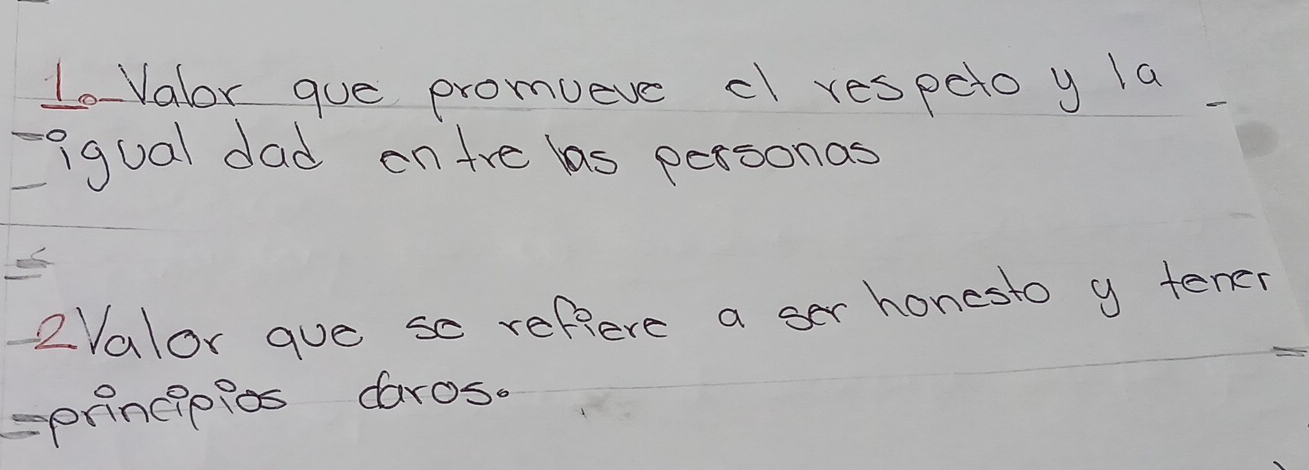 1. Valor que promueve el respeto y la
igual dad entre las personas
2 Valor que se refiere a ser honesto y tener
principios claros.